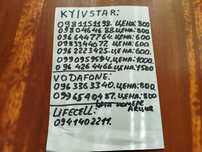 KYIVSTAR:
0981151198. ЦЕНА:800
0980464688. ЦЕНА:800.
0966447764. ЦЕНА:600.
098334077. ЦЕНА:600
0962223425. ЦЕНА:600.
0990959594. ЦЕНА:1000.
096 426 4466. ЦЕНА:4500
VODAFONE:
0963363340. ЦЕНА:800.
0996540487. ЦЕНА:800.
LIFECELL:
0941402211.